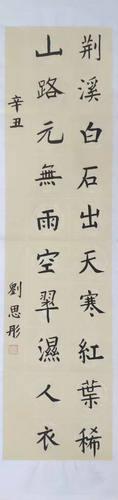 荆溪白石出天寒紅葉稀
山路元無雨空翠濕人衣
辛丑
劉思彤